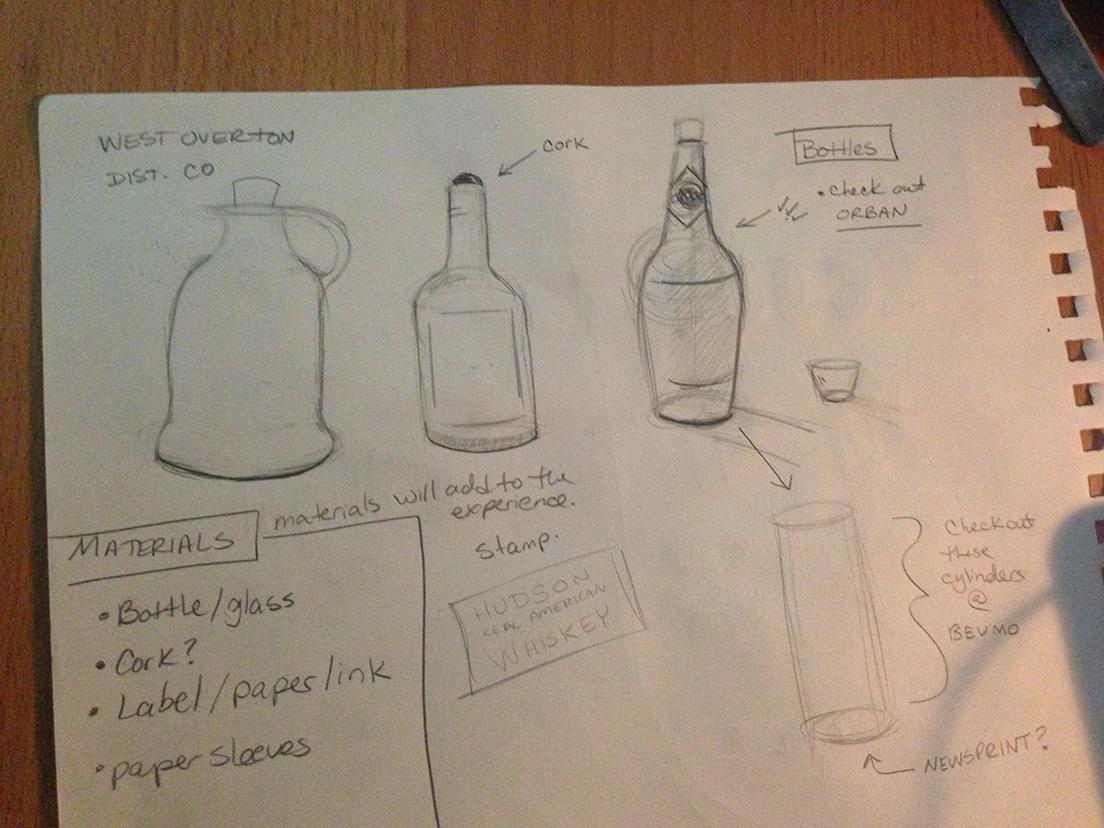 WEST OVERTON
DIST. CO
cork
Bottles
• check out
ORBAN
materials will add to the
experience.
MATERIALS
• Bottle/glass
• Cork?
• Label/paper/ink
• paper sleeves
Stamp.
HUDSON
REAL AMERICAN
WHISKEY
Checkout
these
cylinders
@
BEVMO
NEWSPRINT?